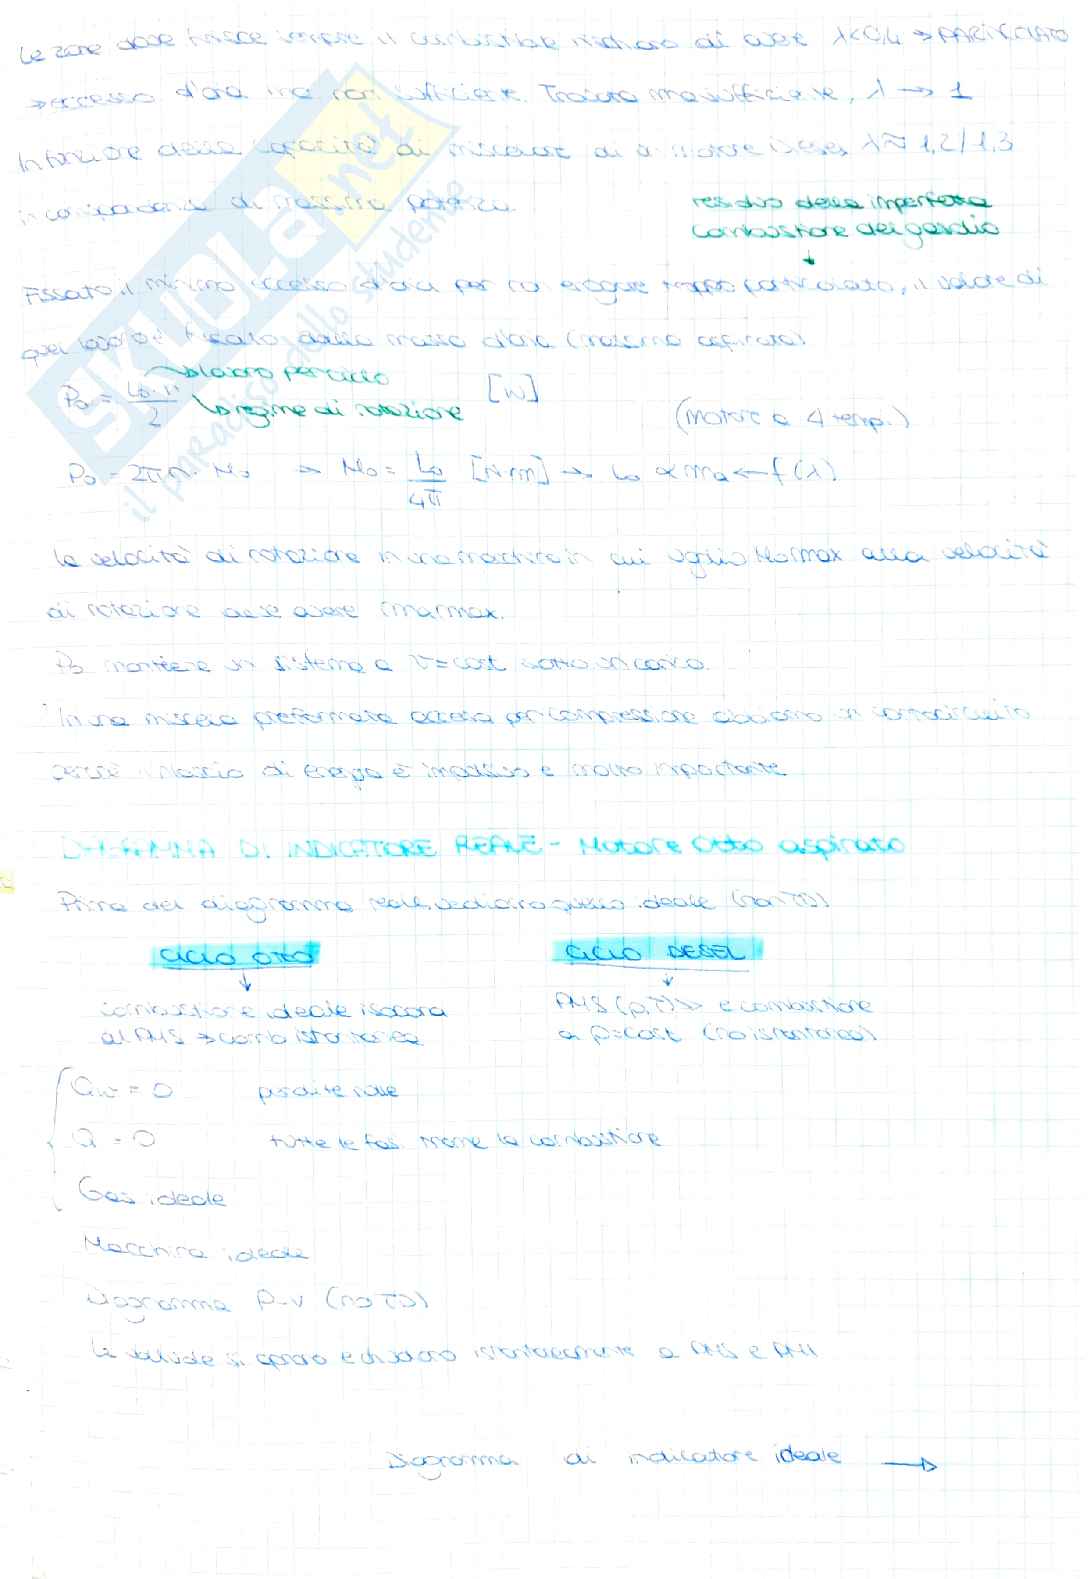 Le zone dove finisce sempre il combustibile rischiano di avere λ<0,4 → PARTICOLATO
→ eccesso d'aria ma non sufficiente. Troiato ma sufficiente, λ → 1
In funzione della capacità di miscelare di un motore Diesel λ ≈ 1,2/1,3
in corrispondenza di massima potenza.
residuo della imperfetta
combustione del gasolio
↓
Fissato il minimo eccesso d'aria per non erogare troppo particolato, il valore di
quel lavoro è fissato dalla massa d'aria (massima aspirata)
→ lavoro per ciclo
P₀ = L₀·n / 2 [W]
→ regime di rotazione
(motore a 4 temp.)
P₀ = 2πn · M₀ → M₀ = L₀ / 4π [N·m] → L₀ ∝ ma ← f(λ)
la velocità di rotazione in una macchina in cui voglio M₀ max alla velocità
di rotazione deve avere ma max.
P₀ mantiene un sistema a v=cost sotto un carico.
In una miscela preformata accesa per compressione abbiamo un cortocircuito
perchè il rilascio di energia è impulsivo e molto importante
DIAGRAMMA DI INDICATORE REALE - Motore Otto aspirato
Prima del diagramma reale, vediamo quello ideale (non TD)
CICLO OTTO
CICLO DIESEL
↓
↓
combustione ideale isocora
al PMS → comb istantanea
PMS (p,T) >> e combustione
a p=cost (no istantanea)
Qw = 0 perdite nulle
Q = 0 tutte le fasi tranne la combustione
Gas ideale
Macchina ideale
Diagramma p-v (no TD)
Le valvole si aprono e chiudono istantaneamente a PMS e PMI
Diagramma di indicatore ideale →
SKUOLA.net
il paradiso dello studente